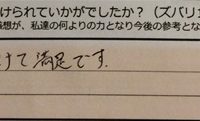 けられていかがでしたか？（ズバリ
感想が、私達の何よりの力となり今後の参考とな
けて満足です。